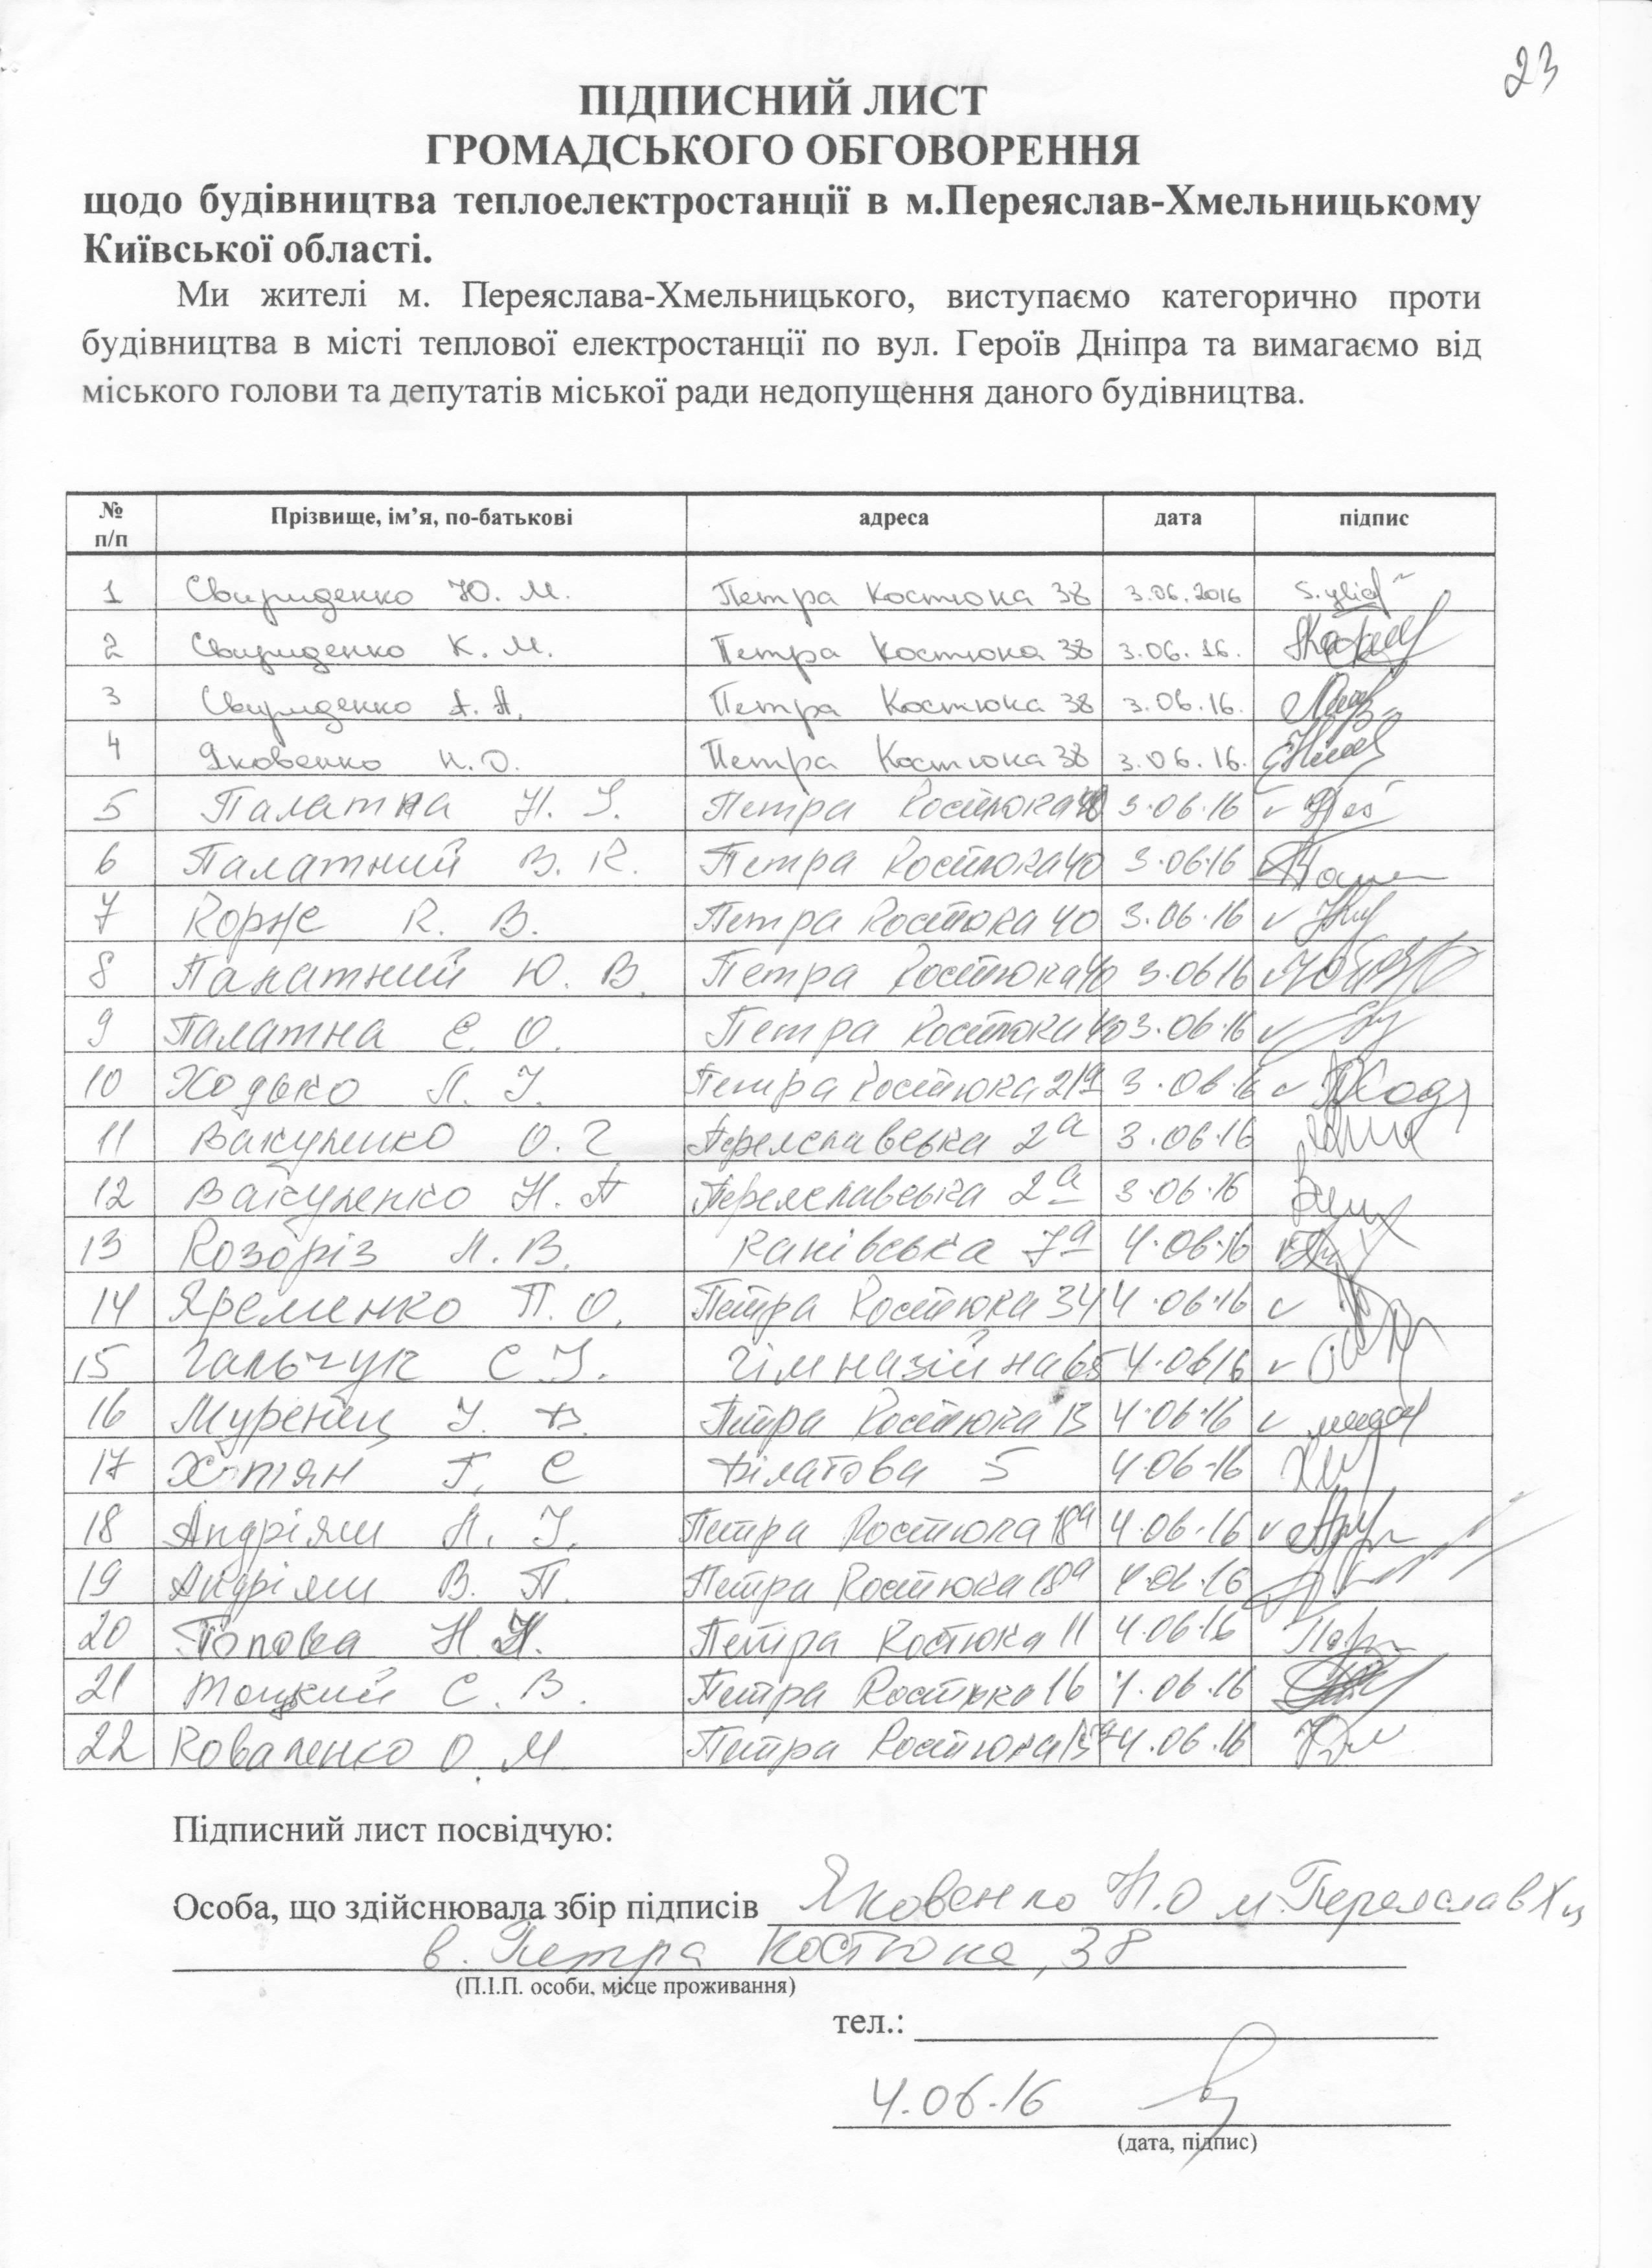 23
ПІДПИСНИЙ ЛИСТ
ГРОМАДСЬКОГО ОБГОВОРЕННЯ
щодо будівництва теплоелектростанції в м.Переяслав-Хмельницькому
Київської області.
Ми жителі м. Переяслава-Хмельницького, виступаємо категорично проти
будівництва в місті теплової електростанції по вул. Героїв Дніпра та вимагаємо від
міського голови та депутатів міської ради недопущення даного будівництва.
№ п/п Прізвище, ім’я, по-батькові адреса дата підпис
1 Свириденко Ю. М. Петра Костюка 38 3.06.2016
2 Свириденко К. М. Петра Костюка 38 3.06.16.
3 Свириденко А. А. Петра Костюка 38 3.06.16.
4 Яковенко Н.О. Петра Костюка 38 3.06.16.
5 Палатна Н. І. Петра Костюка 40 3.06.16
6 Палатний В. К. Петра Костюка 40 3.06.16
7 Корж К. В. Петра Костюка 40 3.06.16
8 Палатний Ю. В. Петра Костюка 40 3.06 16
9 Палатна Є. О. Петра Костюка 40 3.06.16
10 Ходько Л. І. Петра Костюка 21а 3.06.16
11 Вакуленко О. Г Переяславська 2а 3.06.16
12 Вакуленко Н. П Переяславська 2а 3.06.16
13 Розоріз Л. В. Канівська 7а 4.06.16
14 Яременко П. О. Петра Костюка 34 4.06.16
15 Гальчук С. І. Гімназійна 65 4.06/16
16 Муренець І. В. Петра Костюка 13 4.06.16
17 Г. Є Філатова 5 4.06.16
18 Андріяш Л. І. Петра Костюка 18а 4.06.16
19 Андріяш В. П. Петра Костюка 18а 4.06.16
20 Попова Н. Н. Петра Костюка 11 4.06.16
21 Тоцький С. В. Петра Костюка 16 4.06.16
22 Коваленко О. М Петра Костюка 4.06.16
Підписний лист посвідчую:
Особа, що здійснювала збір підписів Яковенко Н.О м.Переяслав Хм
в. Петра Костюка, 38
(П.І.П. особи, місце проживання)
тел.:
4.06.16
(дата, підпис)